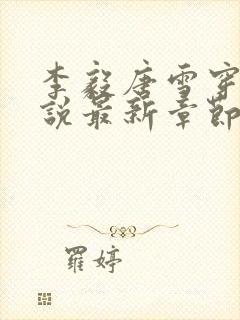 李毅唐雪穿
說最新章節
羅婷